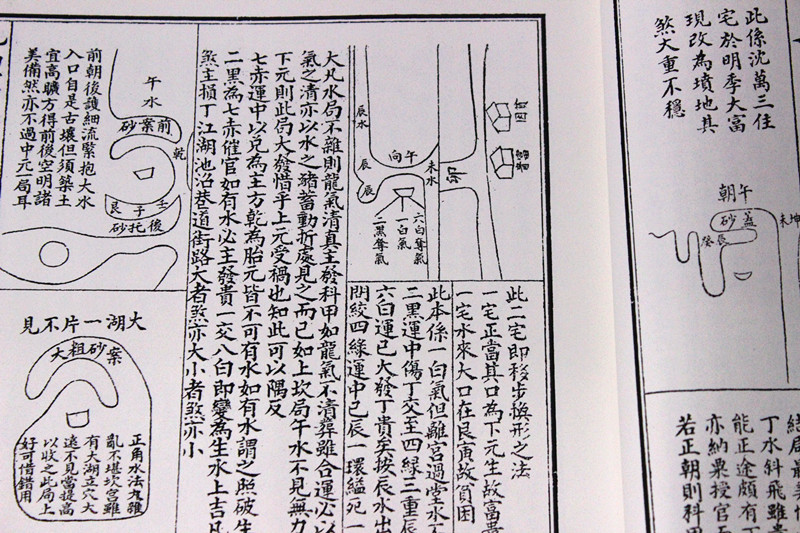 此係沈萬三住
宅於明季大富
現改為墳地其
煞大重不穩
午朝
蓋砂
未坤
癸
辰
結局最美
丁水斜飛雖貴
能正途頗有丁
亦納粟授官
若正朝則科甲
辰水
向午
未水
辰
辰
六白奪氣
一白氣
二黑奪氣
此二宅即移步換形之法
一宅正當其口為下元生故富貴
一宅水來大口在艮寅故貧困
此本係一白氣但離宮過堂水
二黑運中傷丁交至四綠三重辰
六白運已大發丁貴矣按辰水出
門絞四綠運中已辰一環縊死一
大凡水局不雜則龍氣清真主發科甲如龍氣不清葬雖合運必以
氣之清亦以水之豬蓄動折處見之而已如上坎局午水不見無力
下元則此局大發惜乎上元受禍也知此可以隅反
七赤運中以兌為主方乾為胎元皆不可有水如有水謂之照破生
二黑為七赤催官如有水必主發貴一交八白即變為生水上吉凡
煞主損丁江湖池沼巷道街路大者煞亦大小者煞亦小
午水
前案砂
乾
壬子艮
後托砂
前朝後護細流緊抱大水
入口自是古壤但須築土
宜高曠方得前後空明諸
美備然亦不過中元局耳
大湖一片不見
案砂粗大
正角水法九雜
亂不堪坎宮雖
有大湖立穴大
遠不見當提高
以收之此局上
好可借錯用